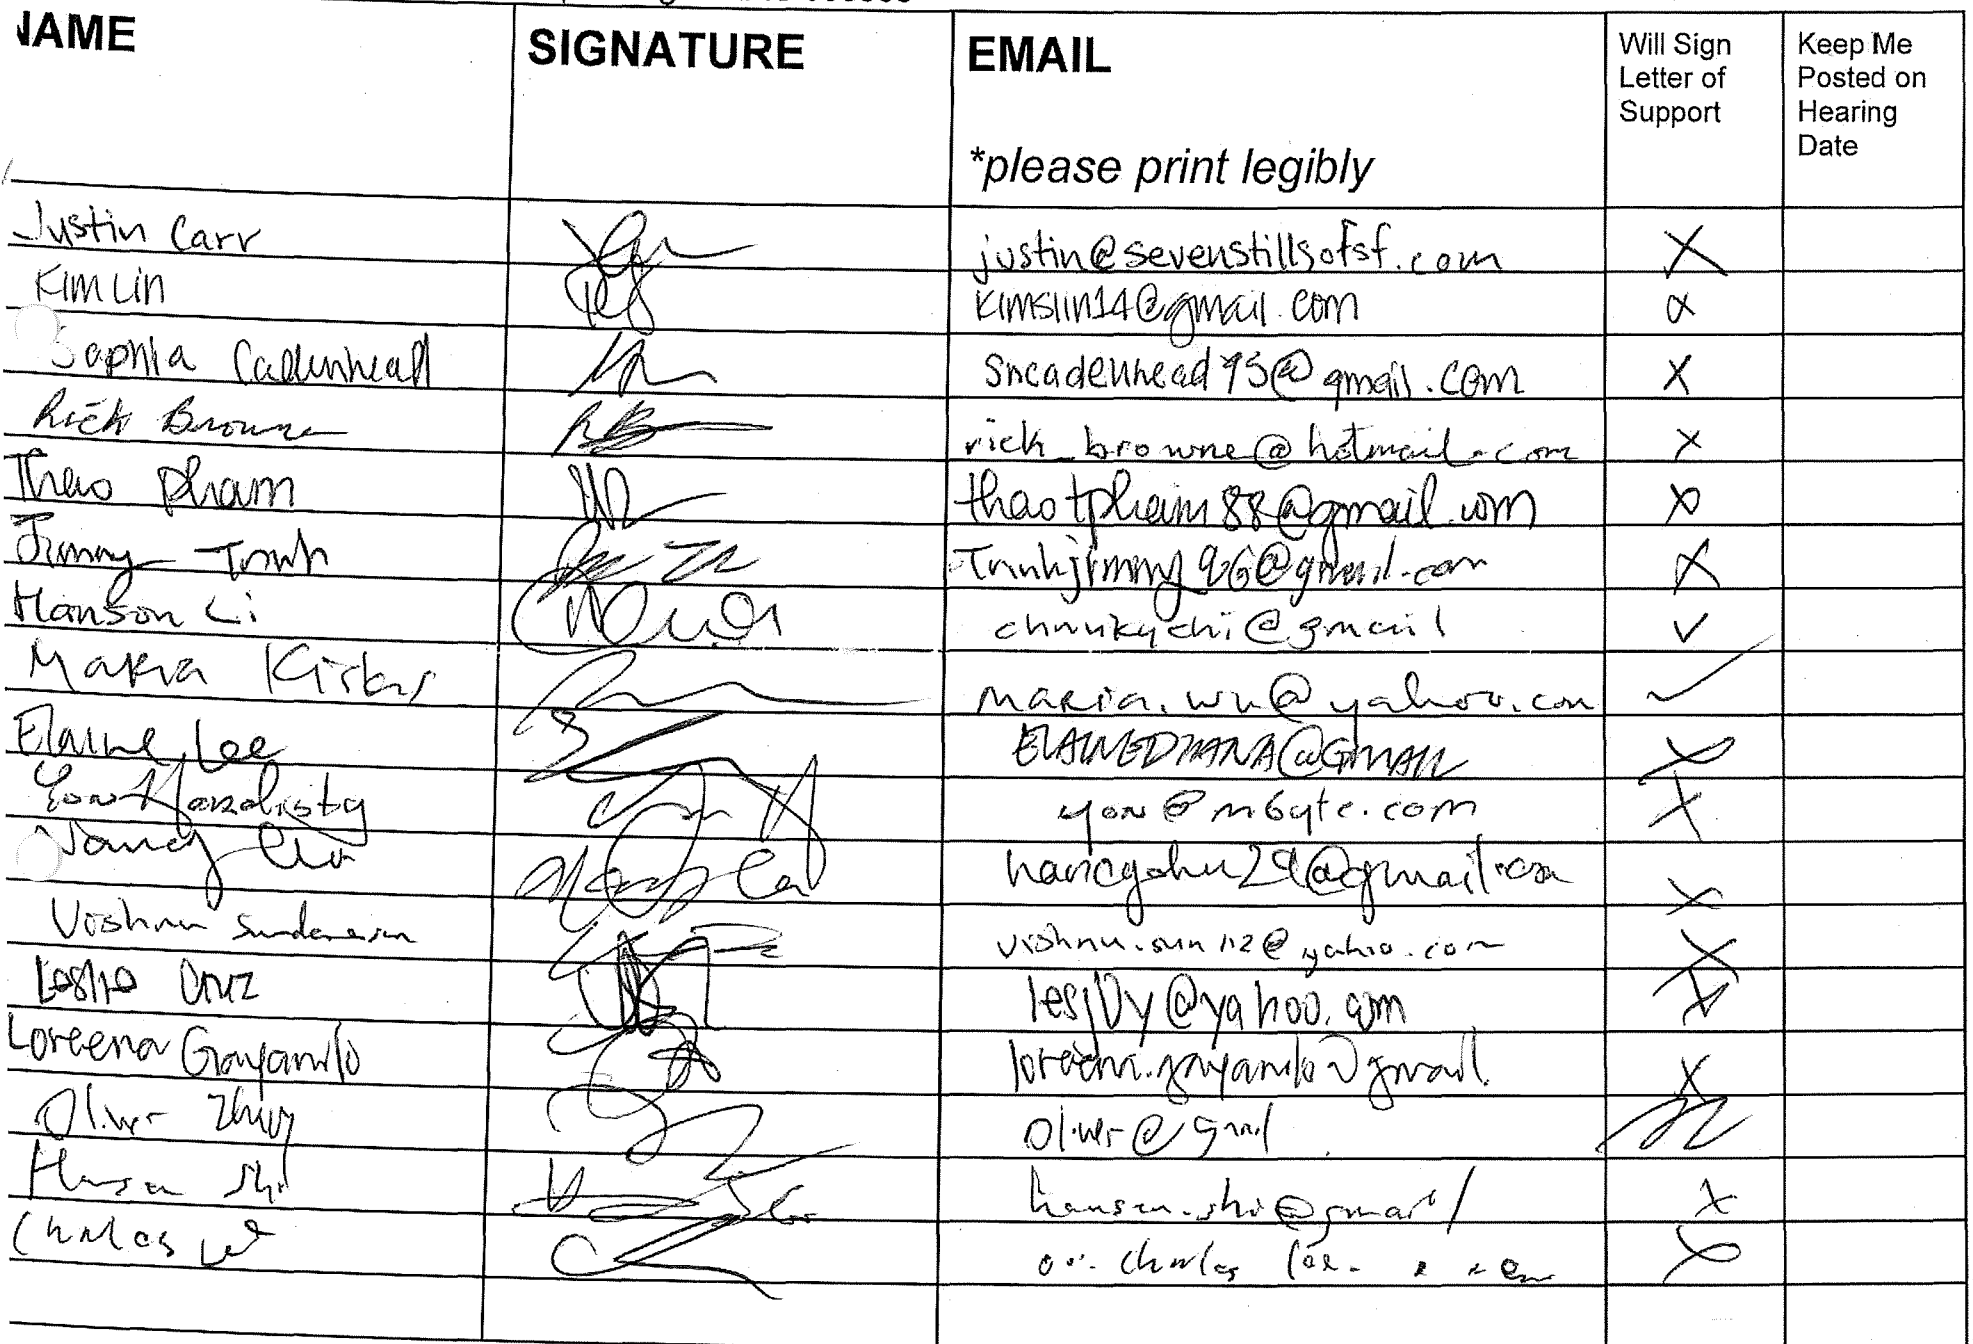 NAME SIGNATURE EMAIL Will Sign Letter of Support Keep Me Posted on Hearing Date
*please print legibly
Justin Carr justin@sevenstillsofsf.com X
Kim Lin kimslin14@gmail.com X
Sophia Cadenhead sncadenhead95@gmail.com X
Rick Browne rick_browne@hotmail.com X
Thao Pham thaotpham88@gmail.com X
Jimmy Trinh Trinhjimmy96@gmail.com X
Hanson Li @gmail ✓
Maria maria.wu@yahoo.com ✓
Elaine Lee ELAINEDIANA@GMAIL X
Yon yon@m6yte.com X
Nancy nancyshu29@gmail.com X
Vishnu vishnu.sun112@yahoo.com X
Leslie Cruz lesjoy@yahoo.com X
Loreena Gayanilo loreena.gayanilo@gmail X
Oliver oliver@gmail
Hansen Shi hansen.shi@gmail X
Charles Lee charles lee X